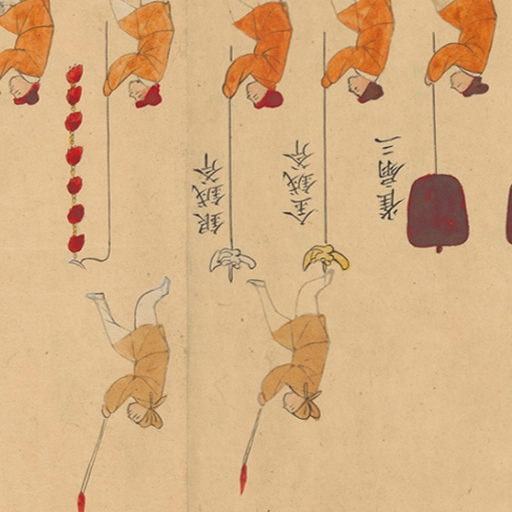 銀鉞斧
金鉞斧
雀扇三